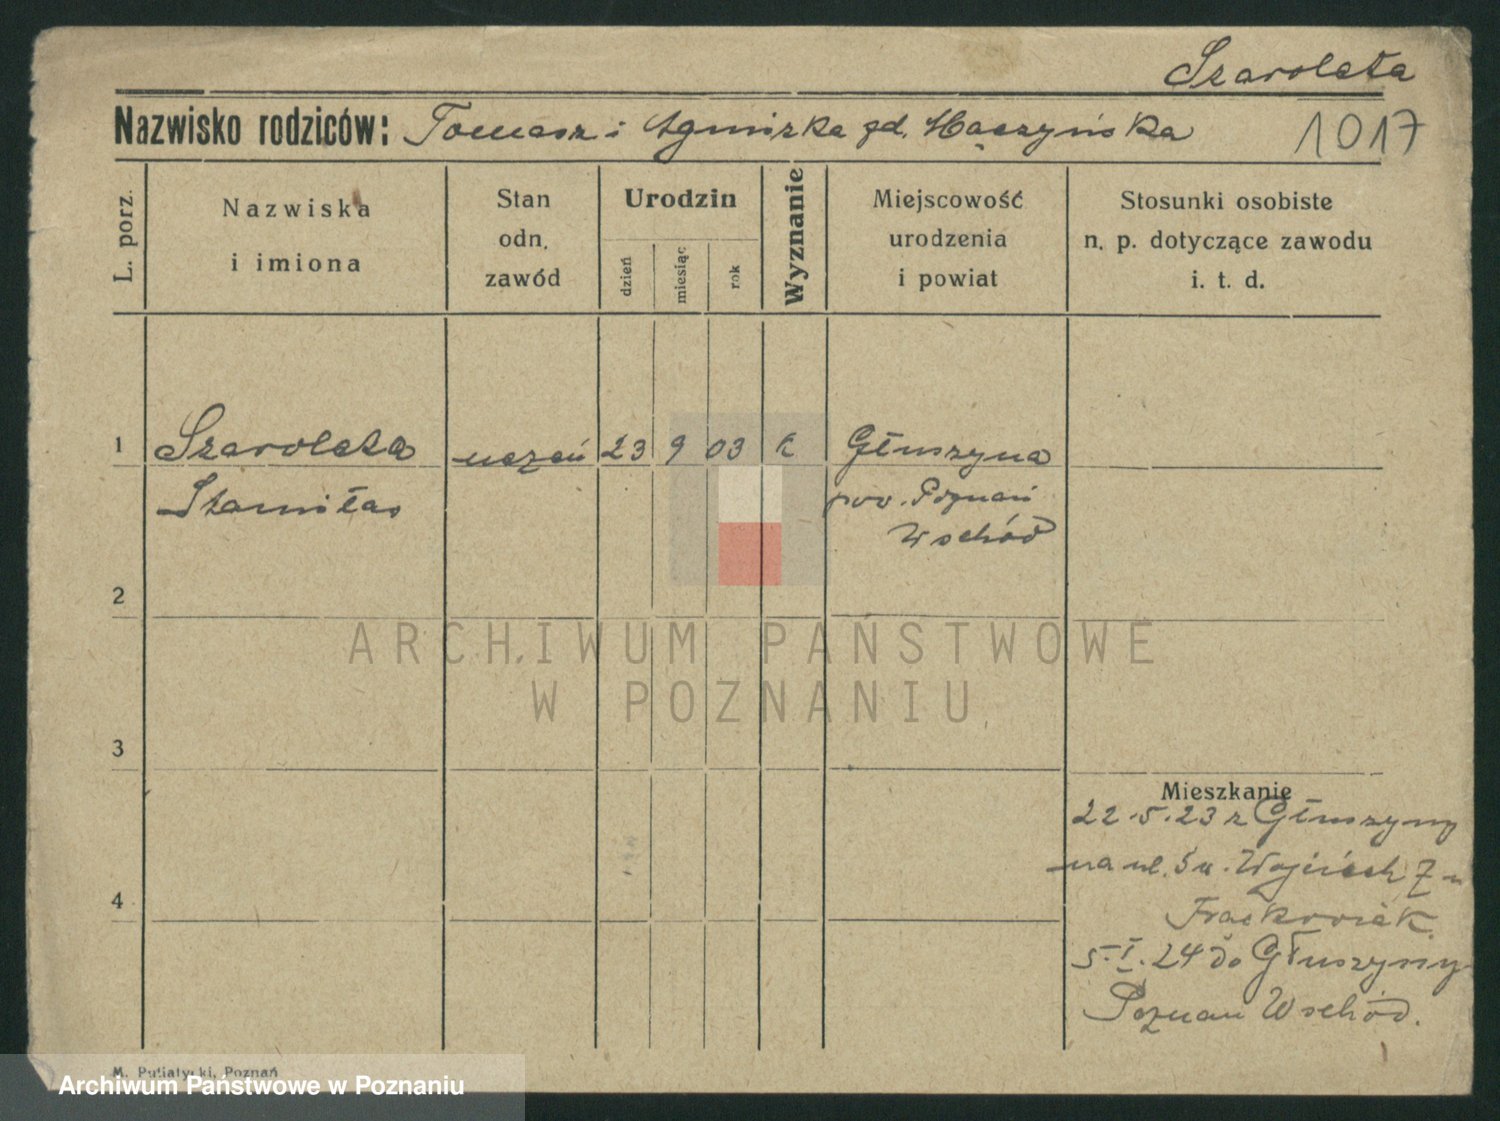 Szaroleta
Nazwisko rodziców: Tomasz i Agniszka zd. Mączyńska
1017
L. porz.
Nazwiska
i imiona
Stan
odn.
zawód
Urodzin
dzień
miesiąc
rok
Wyznanie
Miejscowość
urodzenia
i powiat
Stosunki osobiste
n. p. dotyczące zawodu
i. t. d.
1 Szaroleta uczeń 23 9 03 k Głuszyna
Stanisłas pow. Poznań
Wschód
2
3
4
Mieszkanie
22.5.23 z Głuszyny
na ul. Św. Wojciech 7 u
Frąckowiak.
5.I.24 do Głuszyny
Poznań Wschód.
ARCHIWUM PAŃSTWOWE
W POZNANIU
M. Putiatycki, Poznań
Archiwum Państwowe w Poznaniu